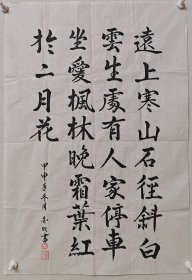 遠上寒山石徑斜白
雲生處有人家停車
坐愛楓林晚霜葉紅
於二月花
甲申年冬月